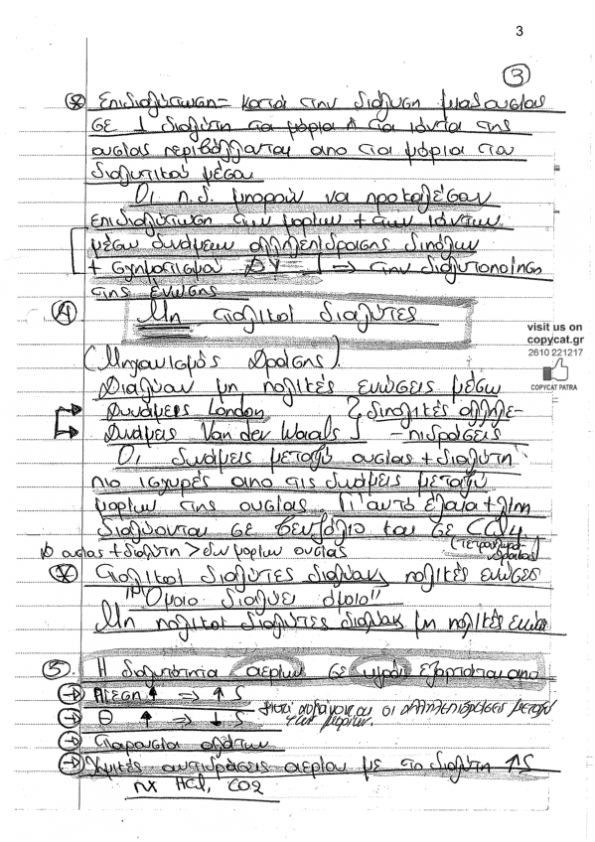 3
3
* Επιδιαλύτωση = κατά την διάλυση μιας ουσίας
σε 1 διαλύτη τα μόρια ή τα ιόντα της
ουσίας περιβάλλονται απο τα μόρια του
διαλυτικού μέσου
Οι π.δ. μπορούν να προκαλέσουν
επιδιαλύτωση των μορίων + των ιόντων
μέσω δυνάμεων αλληλεπίδρασης διπόλων
+ σχηματισμού ΔΥ => την διαλυτοποίηση
της ένωσης
4 Μη πολικοί διαλύτες
visit us on
copycat.gr
2610 221217
COPYCAT PATRA
(Μηχανισμός Δράσης)
Διαλύουν μη πολικές ενώσεις μέσω
Δυνάμεις London } διπολικές αλληλε-
Δυνάμεις Van der Waals -πιδράσεις
Οι δυνάμεις μεταξύ ουσίας + διαλύτη
πιο ισχυρές απο τις δυνάμεις μεταξύ
μορίων της ουσίας. Γι'αυτό έλαια + λίπη
διαλύονται σε βενζόλιο και σε CCl4
ουσίας + διαλύτη > των μορίων ουσίας
* Πολικοί διαλύτες διαλύουν πολικές ενώσεις
"Όμοιο διαλύει όμοιο"
Μη πολικοί διαλύτες διαλύουν μη πολικές ενώσ
5. Η διαλυτότητα αερίων σε υγρά εξαρτάται απο
→ Πίεση ↑ => ↑ S
→ Θ ↑ => ↓ S γιατί αυξάνονται οι αλληλεπιδράσεις μεταξύ
των μορίων.
→ Παρουσία αλάτων
→ Χημικές αντιδράσεις αερίου με το διαλύτη ↑ S
πχ HCl, CO2